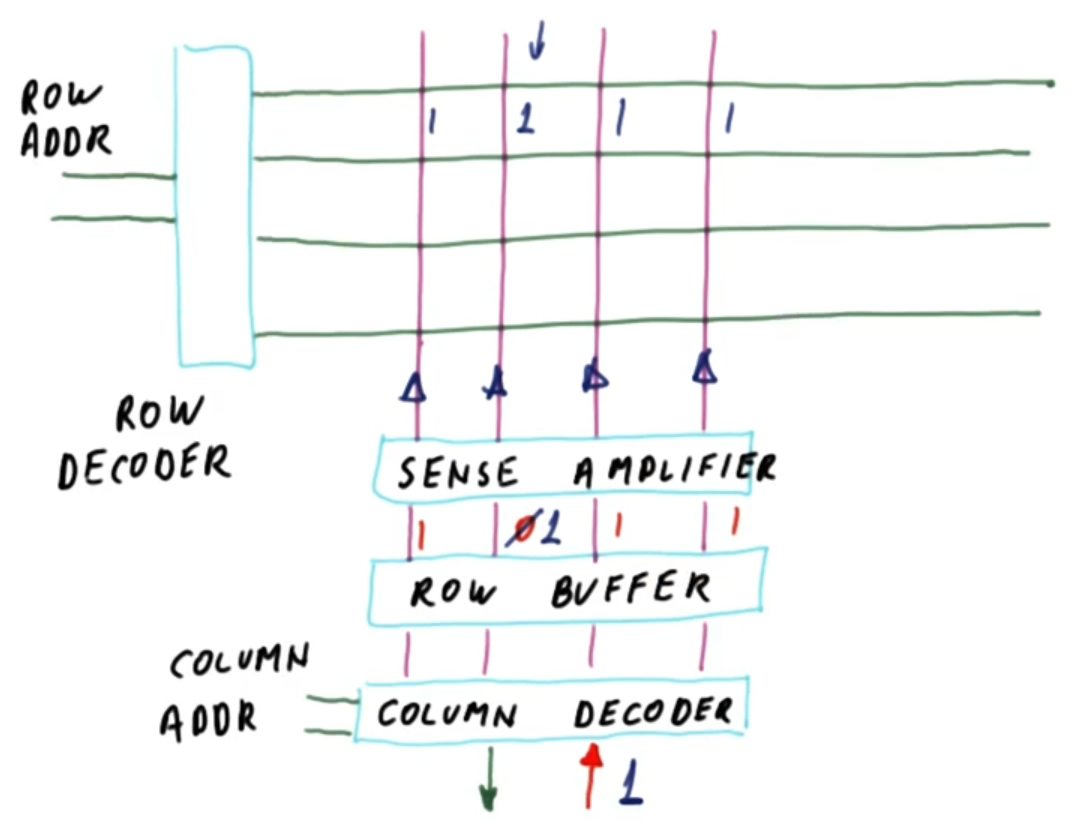 ROW
ADDR
1 1 1 1
ROW
DECODER
SENSE AMPLIFIER
1 0 1 1 1
ROW BUFFER
COLUMN
ADDR
COLUMN DECODER
1